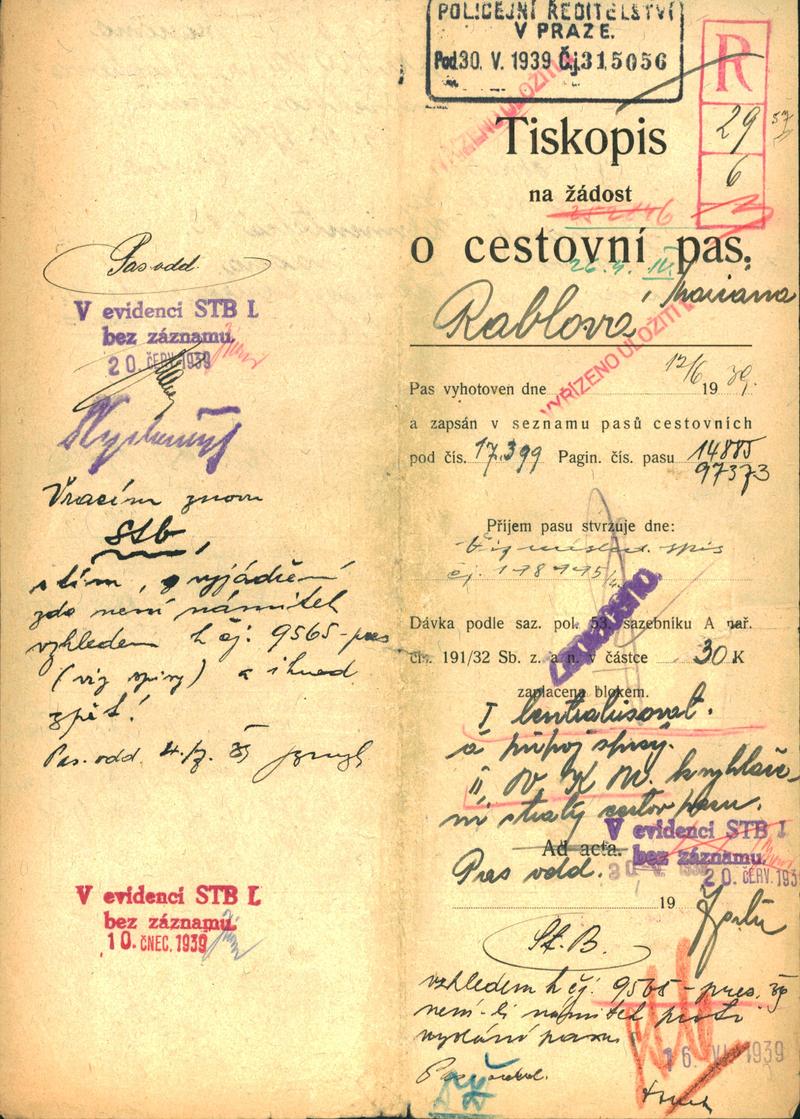 Pas. odd.
V evidenci STB I.
bez záznamu.
20. ČERV. 1939
Vracím znovu
Stb
s tím, vyjádření
zda není námitek
vzhledem k čj. 9565-pres
(viz spisy) a ihned
zpět!
Pas. odd.
V evidenci STB I.
bez záznamu.
10. ČNEC. 1939
POLICEJNÍ ŘEDITELSTVÍ
V PRAZE.
Pod. 30. V. 1939 Čj. 315056
R
29
6
VYŘÍZENO ULOŽITI
Tiskopis
na žádost
o cestovní pas.
Rablová Mariana
VYŘÍZENO ULOŽITI
Pas vyhotoven dne 12/6 1939.
a zapsán v seznamu pasů cestovních
pod čís. 17.399 Pagin. čís. pasu 14885
97373
Příjem pasu stvrzuje dne:
čj. 198995
Dávka podle saz. pol. 53. sazebníku A nař.
čís. 191/32 Sb. z. a n. v částce 30 K
zaplacena blokem.
Zaneseno.
I Centralisovat.
a připoj spisy.
k vyhláše-
ní ztráty cestov. pasu.
V evidenci STB I
bez záznamu.
20. ČERV. 1939
Ad acta.
Pas odd.
19
St. B.
vzhledem k čj. 9565-pres. 39
není-li námitek proti
vydání pasu
16. VI. 1939